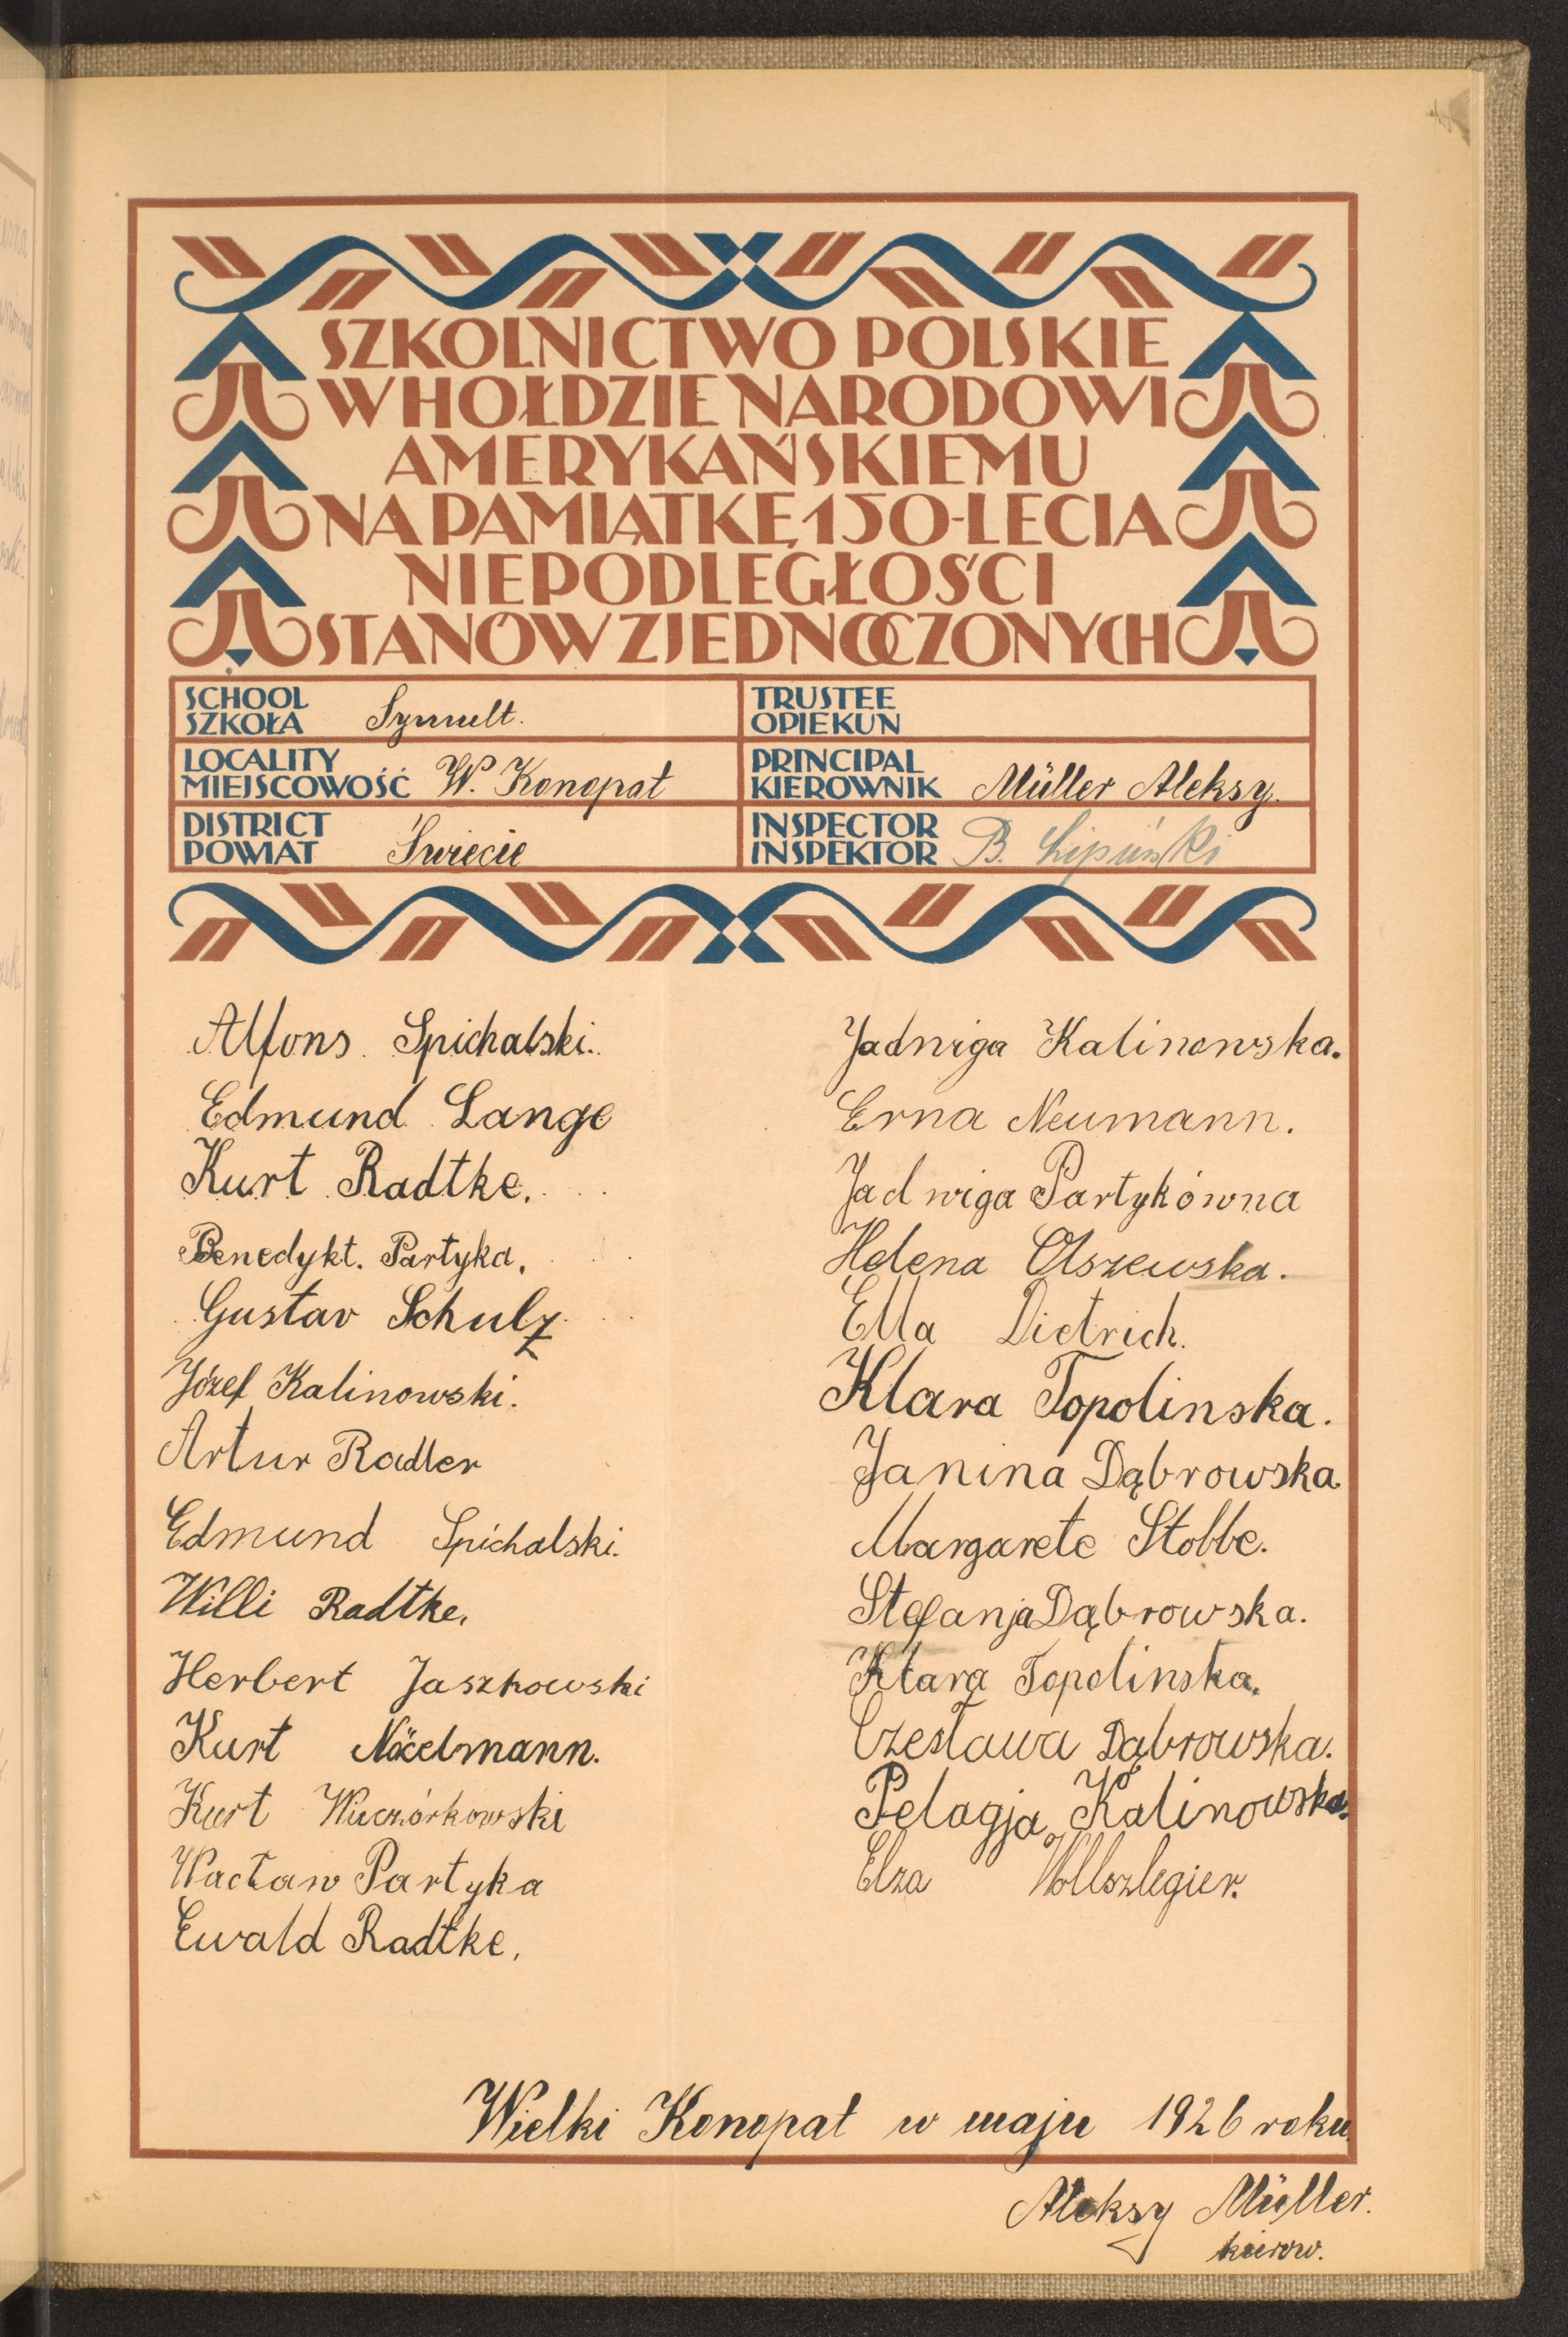 SZKOLNICTWO POLSKIE
W HOŁDZIE NARODOWI
AMERYKAŃSKIEMU
NA PAMIĄTKĘ 150-LECIA
NIEPODLEGŁOŚCI
STANÓW ZJEDNOCZONYCH
SCHOOL
SZKOŁA Symult.
TRUSTEE
OPIEKUN
LOCALITY
MIEJSCOWOŚĆ W. Konopat
PRINCIPAL
KIEROWNIK Müller Aleksy.
DISTRICT
POWIAT Świecie
INSPECTOR
INSPEKTOR B. Lipiński
Alfons Spichalski.
Edmund Lange
Kurt Radtke.
Benedykt. Partyka.
Gustav Schulz
Józef Kalinowski.
Artur Radler
Edmund Spichalski.
Willi Radtke.
Herbert Jaszkowski
Kurt
Kurt Wieczórkowski
Wacław Partyka
Ewald Radtke.
Jadwiga Kalinowska.
Erna Neumann.
Jadwiga Partykówna
Helena Olszewska.
Ella Dietrich.
Klara Topolinska.
Janina Dąbrowska
Margarete Stobbe.
Stefanja Dąbrowska.
Klara Topolinska.
Czesława Dąbrowska.
Pelagja Kalinowska.
Elza Wollszlegier.
Wielki Konopat w maju 1926 roku.
Aleksy Müller.
kierow.